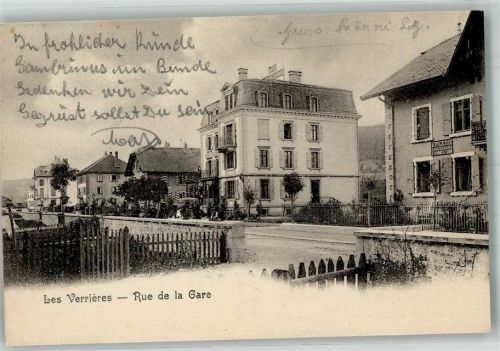 In frohlicher Runde
Gambrinus im Bunde
Gedenken wir Dein
Gegrüst sollst Du sein
Max
Gruss
Les Verrières — Rue de la Gare